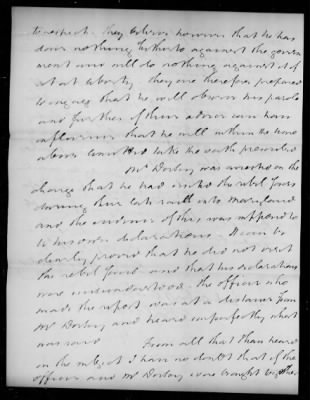 to respect. They believe however that he has
done nothing hitherto against the govern
ment and will do nothing against it if
set at liberty they are therefore prepared
to engage that he will observe his parole
and further if their advice can have
influence that he will within the time
above limited take the oath prescribed
Mr Dorsey was arrested on the
charge that he had invited the rebel forces
during their late raid into Maryland
and the evidence of this was supposed to
be his own declarations. It can be
clearly proved that he did not invite
the rebel force and that his declarations
were misunderstood. The officer who
made the report was at a distance from
Mr Dorsey and heard imperfectly what
was said. From all that I have heard
on the subject I have no doubt that if the
officer and Mr Dorsey were brought together